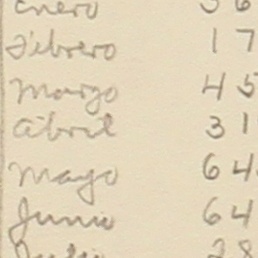 Enero 36
Febrero 17
Marzo 45
Abril 31
Mayo 64
Junio 64
Julio 28